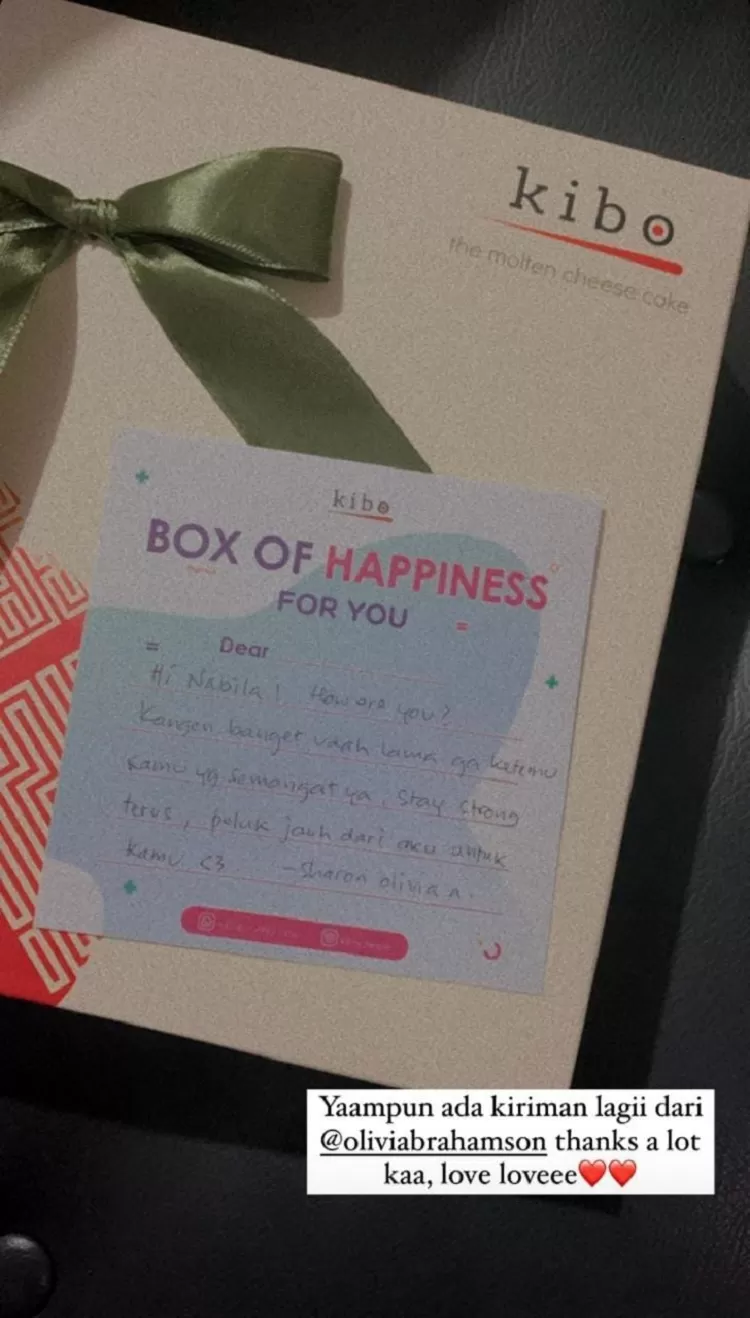 kibo
the molten cheese cake
kibo
BOX OF HAPPINESS
FOR YOU
Dear
Hi Nabila! How are you?
Kangen banget lama ga ketemu
Kamu yg semangat ya, stay strong
terus, peluk jauh dari aku untuk
kamu <3 -sharon olivia a.
Yaampun ada kiriman lagii dari
@oliviabrahamson thanks a lot
kaa, love loveee❤️❤️